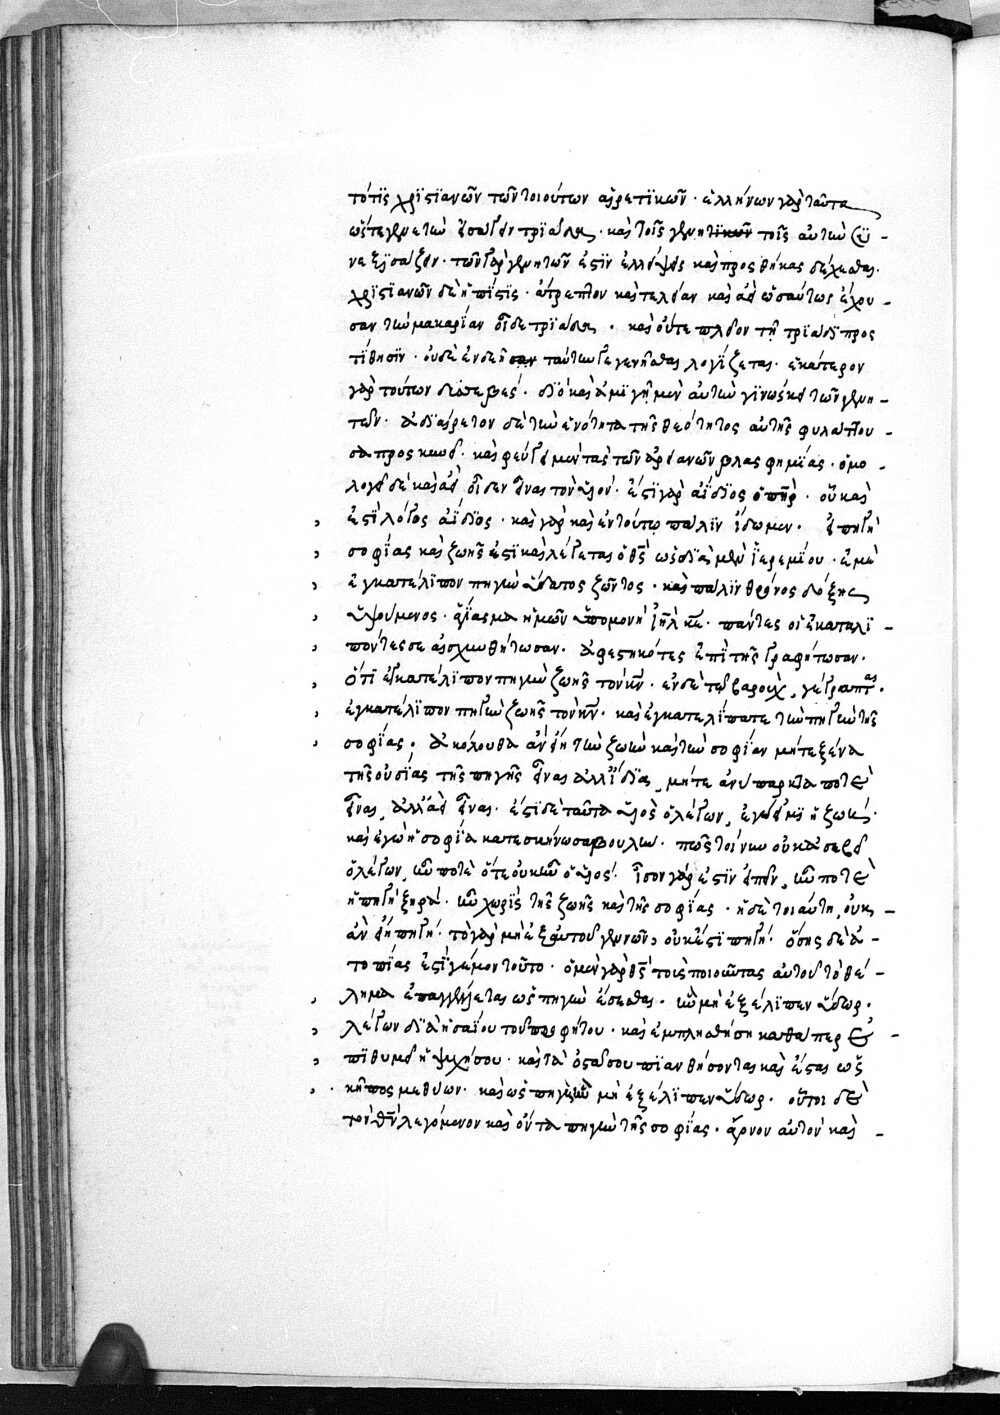 τότϊς χρϊστϊανῶν τῶν τοιούτων αἱρετϊκῶν · ἑλλήνων γὰρ ταῦτα
ὥστε γενετὴν εἰσάγειν τριάδα · καὶ τοῖς γενητικῶν τοῖς αὐτὴν συ -
νεξϊσάζειν · τῶν γὰρ γενητῶν ἐστϊν ἐλλείψεις καὶ προσθήκας δέχεσθαι ·
χρϊστϊανῶν δὲ ἡ πίστϊς · ἄτρεπτον καὶ τελείαν καὶ ἀεὶ ὡσαύτως ἔχου -
σαν τὴν μακαρίαν οἶδε τρϊάδα · καὶ οὔτε πλεῖον τῇ τρϊάδϊ προσ
τίθησϊν · οὐδὲ ἐνδεῆ ταύτην γεγενῆσθαι λογίζεται · ἑκάτερον
γὰρ τούτων δυσσεβές · δϊὸ καὶ ἀμϊγῆ μὲν αὐτὴν γϊνώσκει τῶν γενη -
τῶν · ἀδϊαίρετον δὲ τὴν ἑνότητα τῆς θεότητος αὐτῆς φυλάττου -
σα προσκυνεῖ · καὶ φεύγει μὲν τὰς τῶν ἀρειανῶν βλασφημΐας · ὁμο -
λογεῖ δὲ καὶ ἀεὶ οἶδεν εἶναι τὸν υἱόν · ἐστϊ γὰρ ἀΐδϊος ὁ πηρ · οὗ καὶ
ἐστϊ λόγος ἀΐδϊος · καὶ γὰρ καὶ ἐν τούτῳ πάλϊν ἴδωμεν · εἰ πηγὴ
σοφίας καὶ ζωῆς ἐστϊ καὶ λέγεται ὁ θς ὡς δϊὰ μὲν ἱερεμΐου · ἐμὲ
ἐγκατέλϊπον πηγὴν ὕδατος ζῶντος · καὶ πάλϊν θρόνος δόξης
ὑψούμενος · ἁγΐασμα ἡμῶν ὑπομονὴ ιηλ κε · πάντες οἱ ἐγκαταλϊ -
πόντες σε αἰσχυνθήτωσαν · ἀφεστηκότες ἐπὶ τῆς γραφήτωσαν ·
ὅτϊ ἐγκατέλϊπον πηγὴν ζωῆς τὸν κν · ἐν δὲ τῷ βαρούχ, γέγραπται ·
ἐγκατέλϊπον πηγὴν ζωῆς τὸν κν · καὶ ἐγκατελΐπατε τὴν πηγὴν τῆς
σοφίας · ἀκόλουθα ἂν εἴη τὴν ζωὴν καὶ τὴν σοφίαν μήτε ξένα
τῆς οὐσίας τῆς πηγῆς εἶναι ἀλλ' ἴδια, μήτε ἀνύπαρκτά ποτε
εἶναι, ἀλλ' ἀεὶ εἶναι · ἐστϊ δὲ ταῦτα ὁ υἱὸς ὁ λέγων, ἐγώ εἰμϊ ἡ ζωή ·
καὶ ἐγὼ ἡ σοφΐα κατεσκήνωσα βουλὴν · πῶς τοίνυν οὐκ ἀσεβεῖ
ὁ λέγων, ἦν ποτὲ ὅτε οὐκ ἦν ὁ υἱός · ἴσον γάρ ἐστϊν εἰπεῖν, ἦν ποτὲ
ἡ πηγὴ ξηρὰ · ἦν χωρὶς τῆς ζωῆς καὶ τῆς σοφίας · ἡ δὲ τοιαύτη, οὐκ -
ἂν εἴη πηγή · τὸ γὰρ μὴ ἐξ αὐτοῦ γεννῶν, οὐκ ἔστϊ πηγή · ὅσης δὲ ἀ -
τοπίας ἐστϊ γέμον τοῦτο · ὁ μὲν γὰρ θς τοὺς ποιοῦντας αὐτοῦ τὸ θέ -
λημα ἐπαγγέλλεται ὡς πηγὴν ἔσεσθαι · ἣν μὴ ἐξέλϊπεν ὕδωρ ·
λέγων δϊὰ ἡσαΐου τοῦ προφήτου · καὶ ἐμπλησθήσῃ καθάπερ ἐ -
πϊθυμεῖ ἡ ψυχή σου · καὶ τὰ ὀστᾶ σου πϊανθήσονται καὶ ἔσται ὡς
κῆπος μεθύων · καὶ ὡς πηγὴ ἣν μὴ ἐξέλϊπεν ὕδωρ · οὗτοι δὲ
τὸν θν λεγόμενον καὶ ὄντα πηγὴν τῆς σοφΐας · ἄγονον αὐτὸν καὶ -